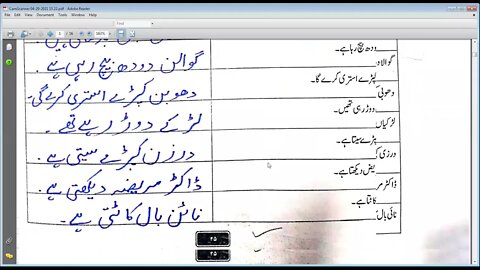 CamScanner 04-29-2021 15.22.pdf - Adobe Reader
File Edit View Document Tools Window Help
Find
دودھ بیچ رہا ہے۔
گوالا
گوالن دودھ بیچ رہی ہے۔
کپڑے استری کرے گا۔
دھوبی
دھوبن کپڑے استری کرے گی۔
دوڑ رہی تھیں۔
لڑکیاں
لڑکے دوڑ رہے تھے۔
کپڑے سیتا ہے۔
درزی
درزن کپڑے سیتی ہے۔
مریض دیکھتا ہے۔
ڈاکٹر
ڈاکٹر مریضہ دیکھتی ہے۔
کاٹتا ہے۔
نائی بال
نائن بال کاٹتی ہے۔
۲۵
۲۵